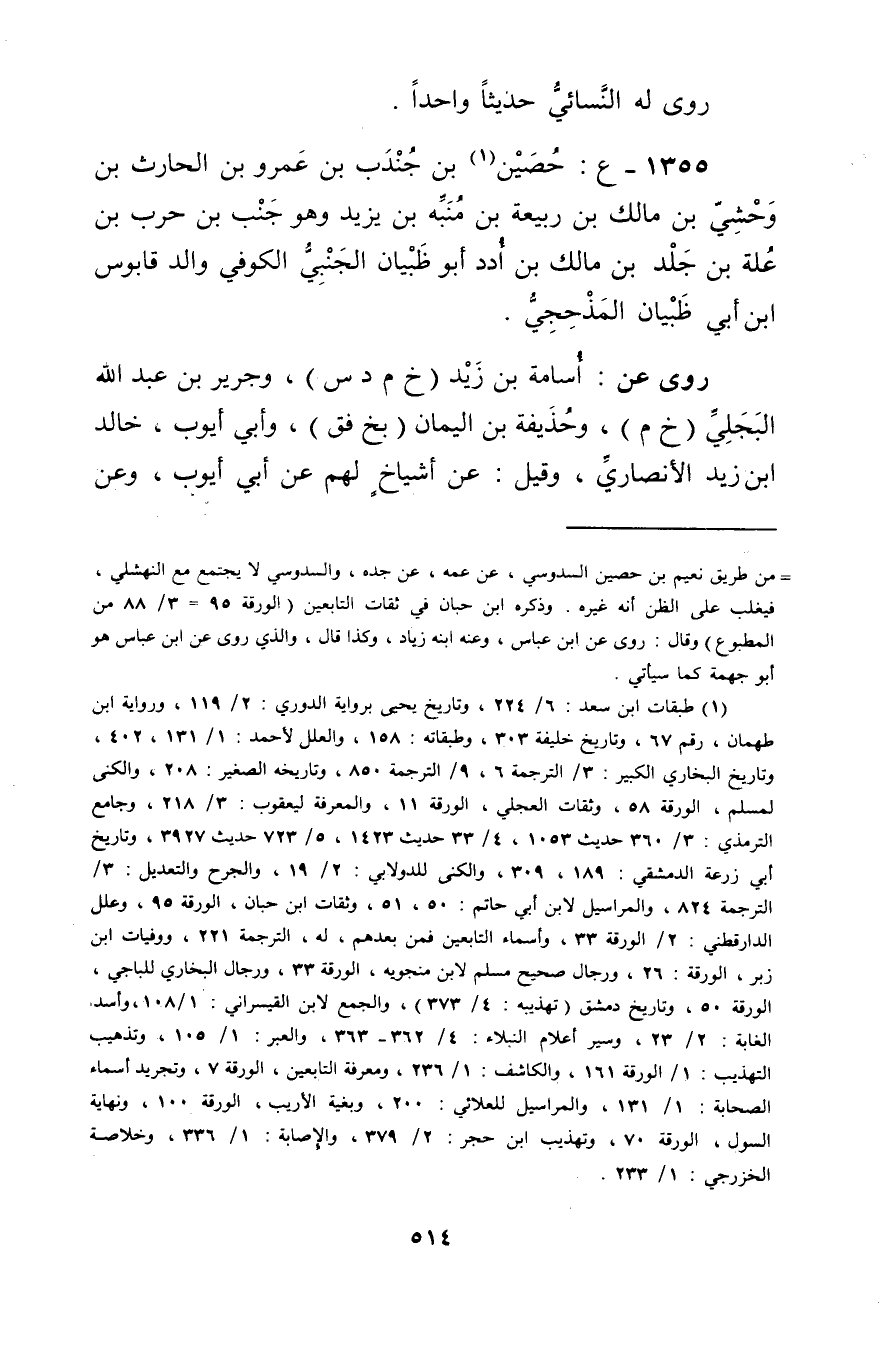 روى له النَّسائيُّ حديثاً واحداً .
١٣٥٥ ـ ع : حُصَيْن(١) بن جُنْدَب بن عَمرو بن الحارث بن
وَحْشِيّ بن مالك بن ربيعة بن مُنَبِّه بن يزيد وهو جَنْب بن حرب بن
عُلة بن جَلْد بن مالك بن أُدد أبو ظَبْيان الجَنْبِيُّ الكوفي والد قابوس
ابن أبي ظَبْيان المَذْحِجِيُّ .
روى عن : أُسامة بن زَيْد ( خ م د س ) ، وجرير بن عبد الله
البَجَلِيِّ ( خ م ) ، وحُذَيفة بن اليمان ( بخ فق ) ، وأبي أيوب ، خالد
ابن زيد الأنصاريِّ ، وقيل : عن أشياخٍ لهم عن أبي أيوب ، وعن
= من طريق نعيم بن حصين السدوسي ، عن عمه ، عن جده ، والسدوسي لا يجتمع مع النهشلي ،
فيغلب على الظن أنه غيره . وذكره ابن حبان في ثقات التابعين ( الورقة ٩٥ = ٣/ ٨٨ من
المطبوع ) وقال : روى عن ابن عباس ، وعنه ابنه زياد ، وكذا قال ، والذي روى عن ابن عباس هو
أبو جهمة كما سيأتي .
(١) طبقات ابن سعد : ٦/ ٢٢٤ ، وتاريخ يحيى برواية الدوري : ٢/ ١١٩ ، ورواية ابن
طهمان ، رقم ٦٧ ، وتاريخ خليفة ٣٠٣ ، وطبقاته : ١٥٨ ، والعلل لأحمد : ١/ ١٣١ ، ٤٠٢ ،
وتاريخ البخاري الكبير : ٣/ الترجمة ٦ ، ٩/ الترجمة ٨٥٠ ، وتاريخه الصغير : ٢٠٨ ، والكنى
لمسلم ، الورقة ٥٨ ، وثقات العجلي ، الورقة ١١ ، والمعرفة ليعقوب : ٣/ ٢١٨ ، وجامع
الترمذي : ٣/ ٣٦٠ حديث ١٠٥٣ ، ٤/ ٣٣ حديث ١٤٢٣ ، ٥/ ٧٢٣ حديث ٣٩٢٧ ، وتاريخ
أبي زرعة الدمشقي : ١٨٩ ، ٣٠٩ ، والكنى للدولابي : ٢/ ١٩ ، والجرح والتعديل : ٣/
الترجمة ٨٢٤ ، والمراسيل لابن أبي حاتم : ٥٠ ، ٥١ ، وثقات ابن حبان ، الورقة ٩٥ ، وعلل
الدارقطني : ٢/ الورقة ٣٣ ، وأسماء التابعين فمن بعدهم ، له ، الترجمة ٢٢١ ، ووفيات ابن
زبر ، الورقة : ٢٦ ، ورجال صحيح مسلم لابن منجويه ، الورقة ٣٣ ، ورجال البخاري للباجي ،
الورقة ٥٠ ، وتاريخ دمشق ( تهذيبه : ٤/ ٣٧٣ ) ، والجمع لابن القيسراني : ١/ ١٠٨ ، وأسد
الغابة : ٢/ ٢٣ ، وسير أعلام النبلاء : ٤/ ٣٦٢ ـ ٣٦٣ ، والعبر : ١/ ١٠٥ ، وتذهيب
التهذيب : ١/ الورقة ١٦١ ، والكاشف : ١/ ٢٣٦ ، ومعرفة التابعين ، الورقة ٧ ، وتجريد أسماء
الصحابة : ١/ ١٣١ ، والمراسيل للعلائي : ٢٠٠ ، وبغية الأريب ، الورقة ١٠٠ ، ونهاية
السول ، الورقة ٧٠ ، وتهذيب ابن حجر : ٢/ ٣٧٩ ، والإصابة : ١/ ٣٣٦ ، وخلاصة
الخزرجي : ١/ ٢٣٣ .
٥١٤